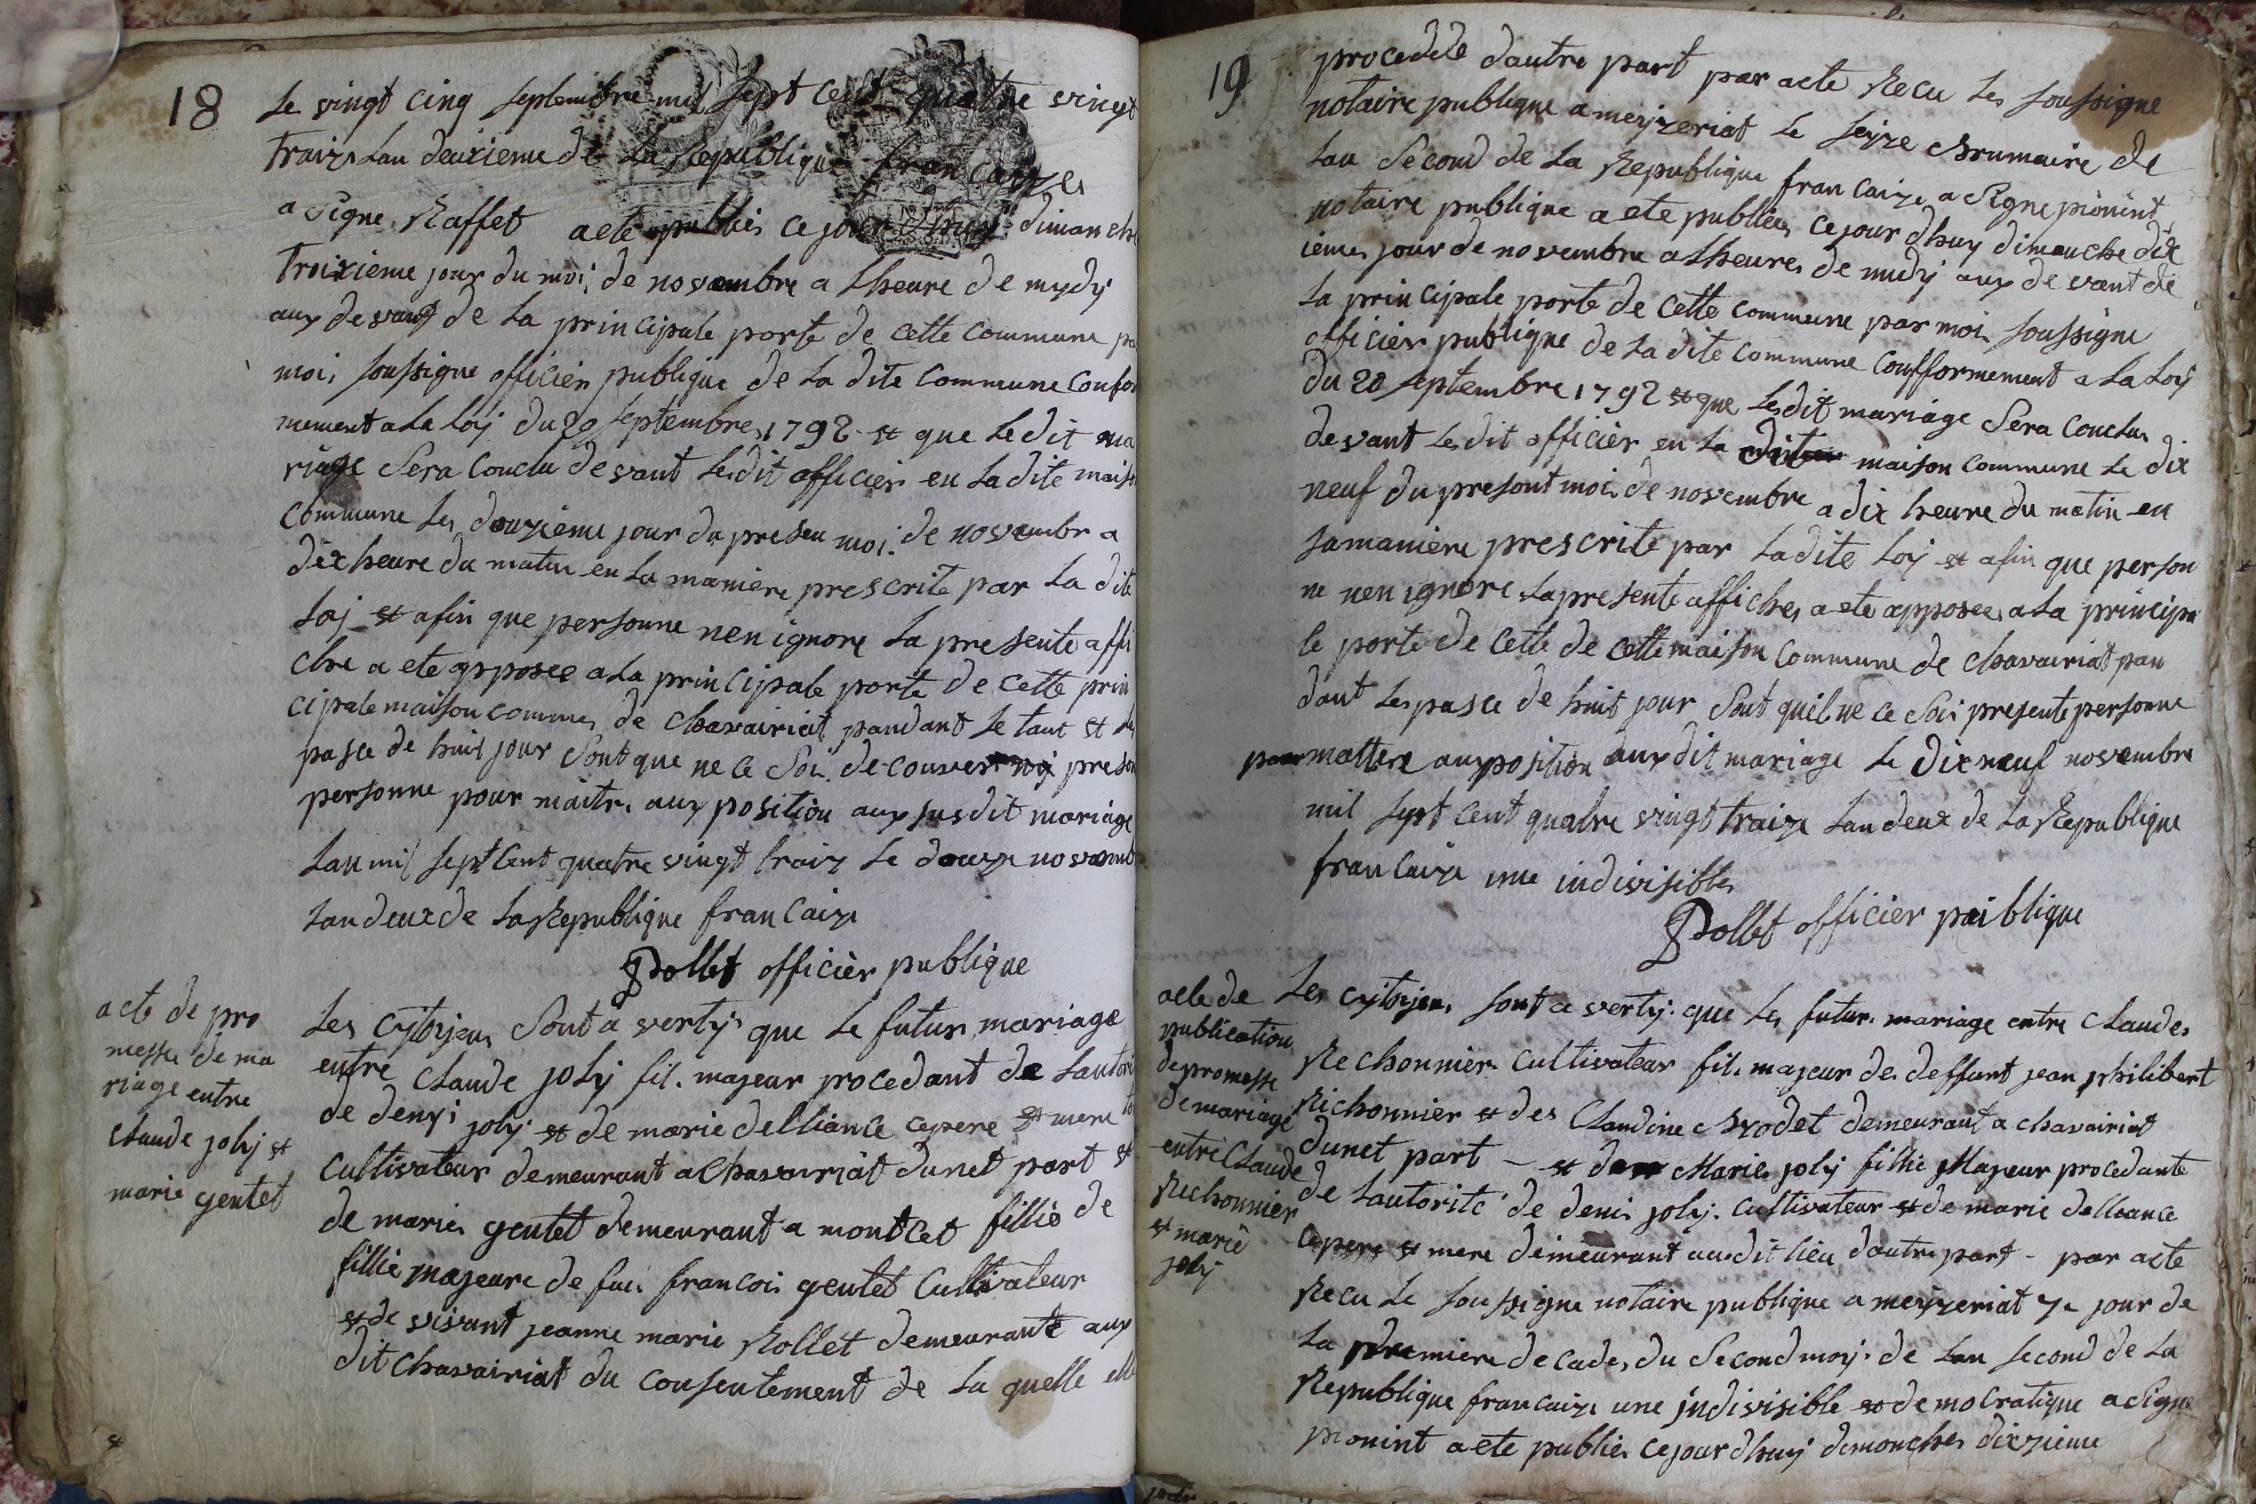 18
Le vingt cinq septembre mil sept cent quatre vingt
traize Lan deuxieme de La Republique francaize
a Signe Raffet a ete publies ce jour dhuy dimanche
troixieme jour du moi de novembre a lheure de mydy
aux devant de La principale porte de cette commune pa
moi soussigne officier publique de La dite commune confor
mement a La loy du 20 septembre 1792 et que Ledit ma
riage Sera Conclu devant Ledit officier en La dite maison
Commune Les douzieme jour du presen moi de novembr a
dix heure du matin en La maniere prescrite par La dite
Loj et afin que personne nen ignore La presente affi
che a ete apposee a La principale porte de cette prin
cipale maison commes de chavairiat pandant Le tant et Les
pasce de huit jour Sont que ne ce Soi de couver presen
personne pour maitre aux position aux susdit mariage
Lan mil sept Cent quatre vingt traiz Le douze novemb
Lan deux de La Republique francaize
Pollet officier publique
acte de pro
messe de ma
riage entre
claude joly et
marie gentet
Les Cytoyens Sont a verty que Le futur mariage
entre claude joly fil majeur procedant de Lautori
de denyi joly et de marie delliance ce pere et mere
Cultivateur demeurant a Chavairiat dunet part et
de maries gentet demeurant a montcet fillie de
fillie majeure de fui francois gentet Cultivateur
et de vivant jeanne marie Rollet demeurante aux
dit chavairiat du consentement de La quelle elle
19
procedele dautre part par acte Recu Les soussigne
notaire publique a meyzeriat Le seyze Brumaire de
Lan Second de La Republique francaize a Signe pionint
notaire publique a ete publies ce jour dhuy dimanche dix
iemes jour de novembre a lheures de midy aux de vant de
La principale porte de cette commune par moi soussigne
officier publique de La dite commune conffformement a La Loy
du 20 septembre 1792 et que Ledit mariage Sera Conclus
devant Ledit officier en La dite maison commune Le dix
neuf du present moi de novembre a dix heure du matin en
samaniere prescrite par La dite Loj et afin que person
ne nen ignore La presente affiches a ete apposees a La principa
le porte de cette de cette maison commune de chavairiat pan
dant Les pasce de huit jour Sont quil ne ce Soi presente personne
pour mattere aux position aux dit mariage Le dix neuf novembre
mil sept cent quatre vingt traize Lan deux de La Republique
francaize une indivisibles
Pollet officier paiblique
acte de
publication
de promesse
de mariage
entre Claude
Rechonnier
et marie
joly
Les cytoyens sont a verty que Les futur mariage entre Claudes
Rechonnier Cultivateur fil majeur des deffunt jean philibert
Richonnier et des Claudine Brodet demeurant a chavairiat
dunet part et de Maries joly fillie Majeur procedante
de Lautorité de denis joly Cultivateur et de marie delleance
ce pere et mere demeurant au dit lieu dautre part - par acte
Recu Le soussigne notaire publique a meyzeriat 7e jour de
La premiere decades du Second moy de Lan second de La
Republique francaize une indivisible et democratique a Signe
pionint a ete publies ce jour dhuy dimanches dixzieme